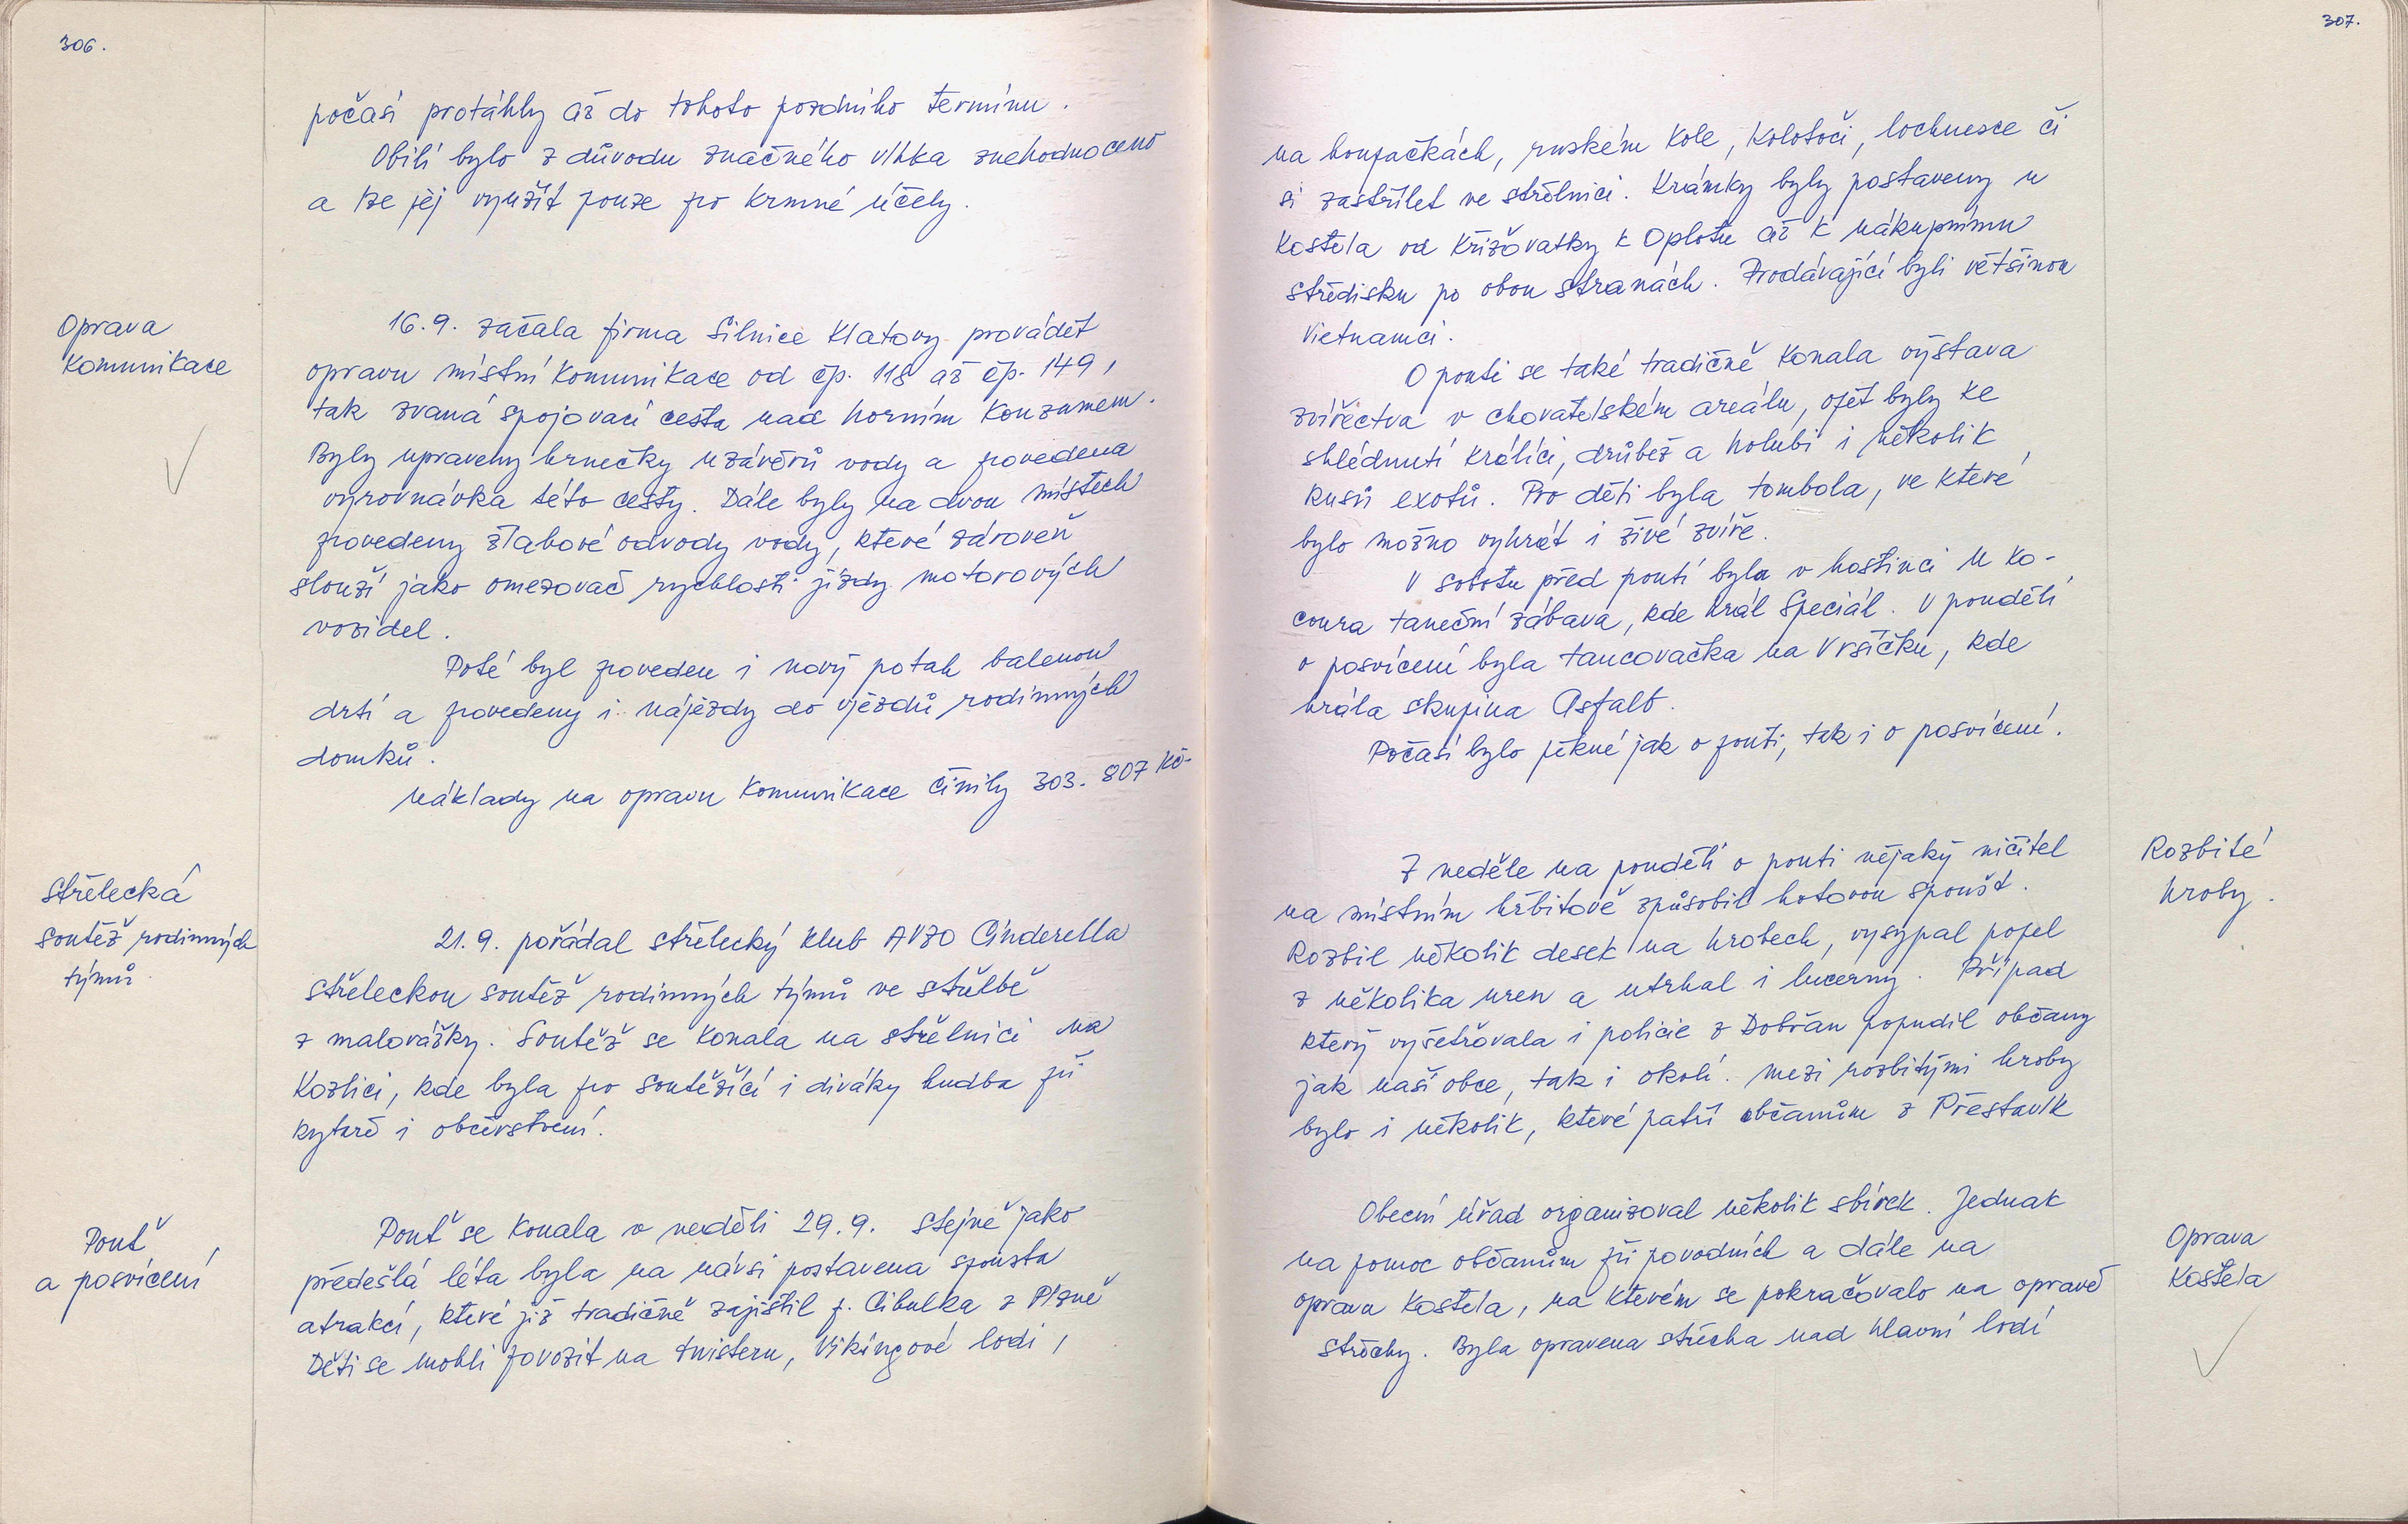 306.
počasí protáhly až do tohoto pozdního termínu.
Obilí bylo z důvodu značného vlhka znehodnoceno
a lze jej využít pouze pro krmné účely.
Oprava
komunikace
16.9. začala firma Silnice Klatovy provádět
opravu místní komunikace od čp. 118 až čp. 149,
tak zvaná spojovací cesta nad horním konzumem.
Byly upraveny hrnečky uzávěrů vody a provedena
vyrovnávka této cesty. Dále byly na dvou místech
provedeny žlabové odvody vody, které zároveň
slouží jako omezovač rychlosti jízdy motorových
vozidel.
Poté byl proveden i nový potah balenou
drtí a provedeny i nájezdy do vjezdů rodinných
domků.
Náklady na opravu komunikace činily 303.807 Kč-
Střelecká
soutěž rodinných
týmů
21.9. pořádal střelecký klub AVZO Cinderella
střeleckou soutěž rodinných týmů ve střelbě
z malorážky. Soutěž se konala na střelnici na
Kozlici, kde byla pro soutěžící i diváky hudba při
kytaře i občerstvení.
Pouť
a posvícení
Pouť se konala v neděli 29.9. Stejně jako
předešlá léta byla na návsi postavena spousta
atrakcí, které již tradičně zajistil p. Cibulka z Plzně
Děti se mohli povozit na twisteru, Vikingové lodi,
307.
na houpačkách, ruském kole, kolotoči, lochnesce či
si zastřílet ve střelnici. Krámky byly postaveny u
kostela od křižovatky k Oplotu až k nákupnímu
středisku po obou stranách. Prodávající byli většinou
Vietnamci.
O pouti se také tradičně konala výstava
zvířectva v chovatelském areálu, opět byly ke
shlédnutí králíci, drůbež a holubi i několik
kusů exotů. Pro děti byla tombola, ve které
bylo možno vyhrát i živé zvíře.
V sobotu před poutí byla v hostinci U Ko-
coura taneční zábava, kde hrál Speciál. V pondělí
o posvícení byla tancovačka na Vršíčku, kde
hrála skupina Asfalt.
Počasí bylo pěkné jak o pouti, tak i o posvícení.
Rozbité
hroby.
Z neděle na pondělí o pouti nějaký ničitel
na místním hřbitově způsobil hotovou spoušť.
Rozbil několik desek na hrobech, vysypal popel
z několika uren a utrhal i lucerny. Případ
který vyšetřovala i policie z Dobřan popudil občany
jak naší obce, tak i okolí. Mezi rozbitými hroby
bylo i několik, které patří občanům z Přestavlk
Oprava
kostela
Obecní úřad organizoval několik sbírek. Jednak
na pomoc občanům při povodních a dále na
opravu kostela, na kterém se pokračovalo na opravě
střechy. Byla opravena střecha nad hlavní lodí